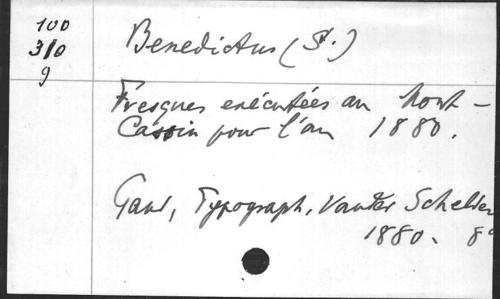 100
310
9
Benedictus (St.)
Fresques exécutées au Mont-
Cassin pour l'an 1880.
Gand, Typograph. Vander Schelden
1880. 8°